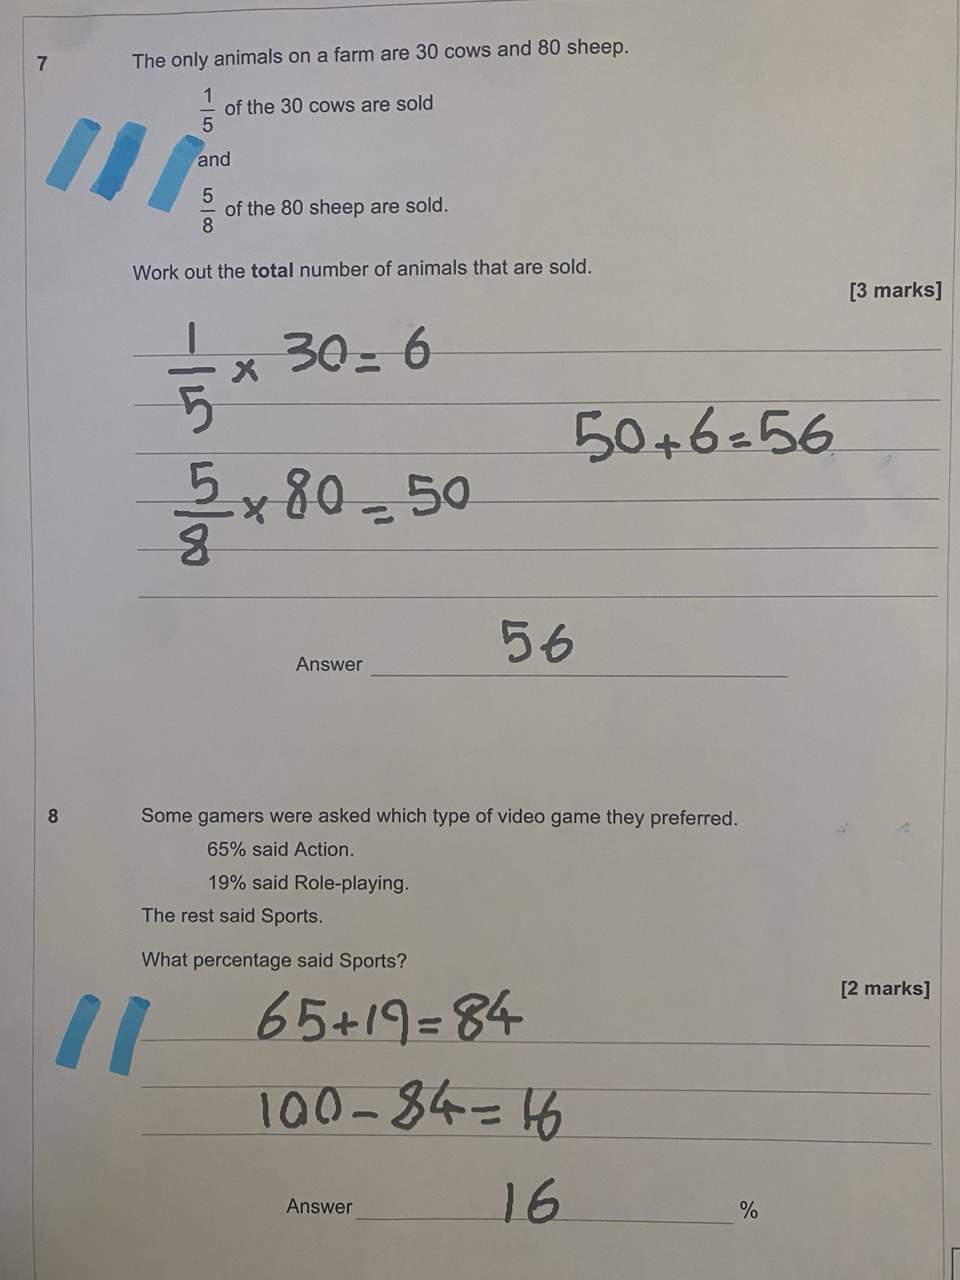 7 The only animals on a farm are 30 cows and 80 sheep.
1/5 of the 30 cows are sold
and
5/8 of the 80 sheep are sold.
Work out the total number of animals that are sold.
[3 marks]
1/5 × 30 = 6
50 + 6 = 56
5/8 × 80 = 50
Answer 56
8 Some gamers were asked which type of video game they preferred.
65% said Action.
19% said Role-playing.
The rest said Sports.
What percentage said Sports?
[2 marks]
65 + 19 = 84
100 - 84 = 16
Answer 16 %